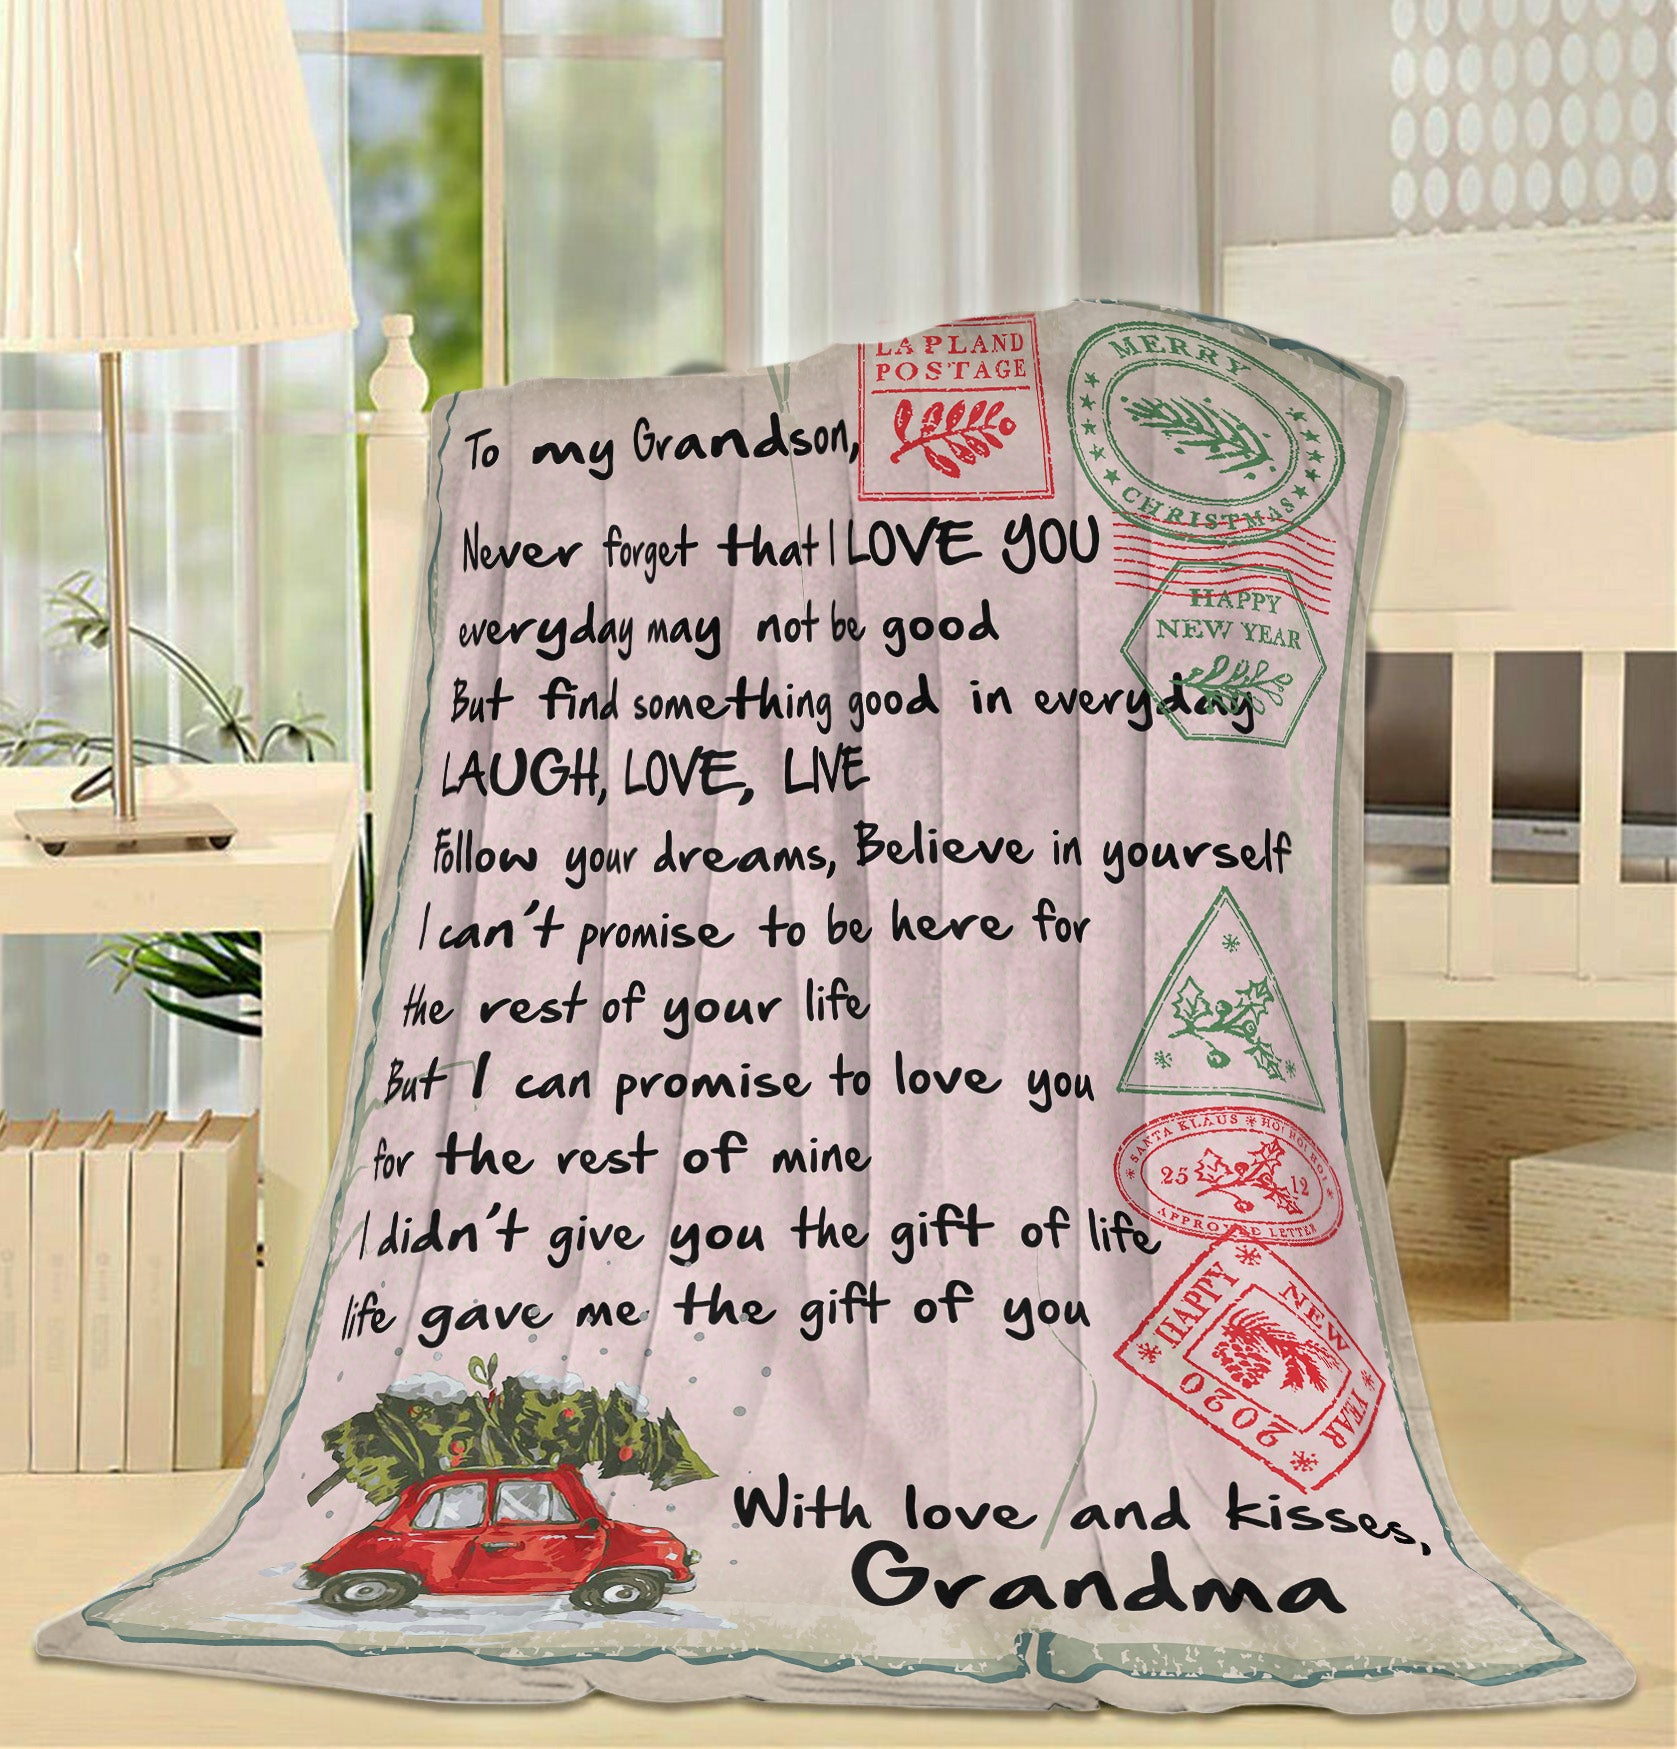 LAPLAND
POSTAGE
MERRY
CHRISTMAS
To my Grandson,
Never forget that I LOVE YOU
HAPPY
NEW YEAR
everyday may not be good
But find something good in everyday
LAUGH, LOVE, LIVE
Follow your dreams, Believe in yourself
I can't promise to be here for
the rest of your life
But I can promise to love you
for the rest of mine
SANTA KLAUS * HO! HO! HO!
25 12
APPROVED LETTER
I didn't give you the gift of life
life gave me the gift of you
HAPPY NEW YEAR 2020
With love and kisses,
Grandma